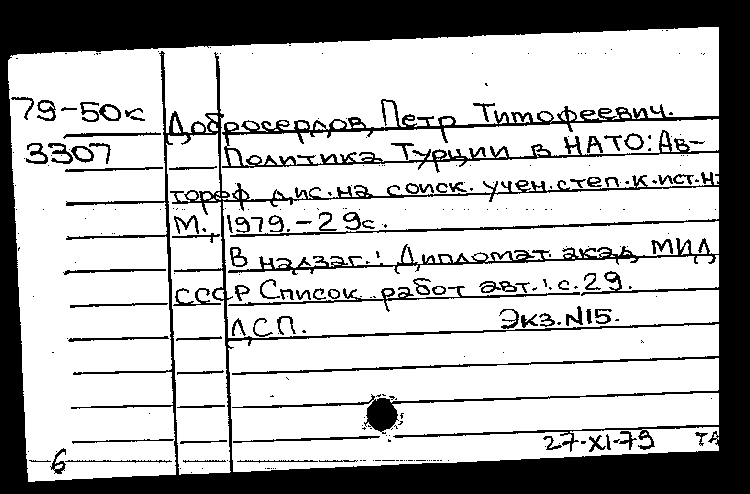 79-50к Добросердов, Петр Тимофеевич.
3307 Политика Турции в НАТО: Ав-
тореф. дис. на соиск. учен. степ. к. ист. н.
М., 1979. - 29с.
В надзаг.: Дипломат. акад. МИД
СССР Список работ авт.: с. 29.
ДСП. Экз. N15.
27-XI-79 ТА
6